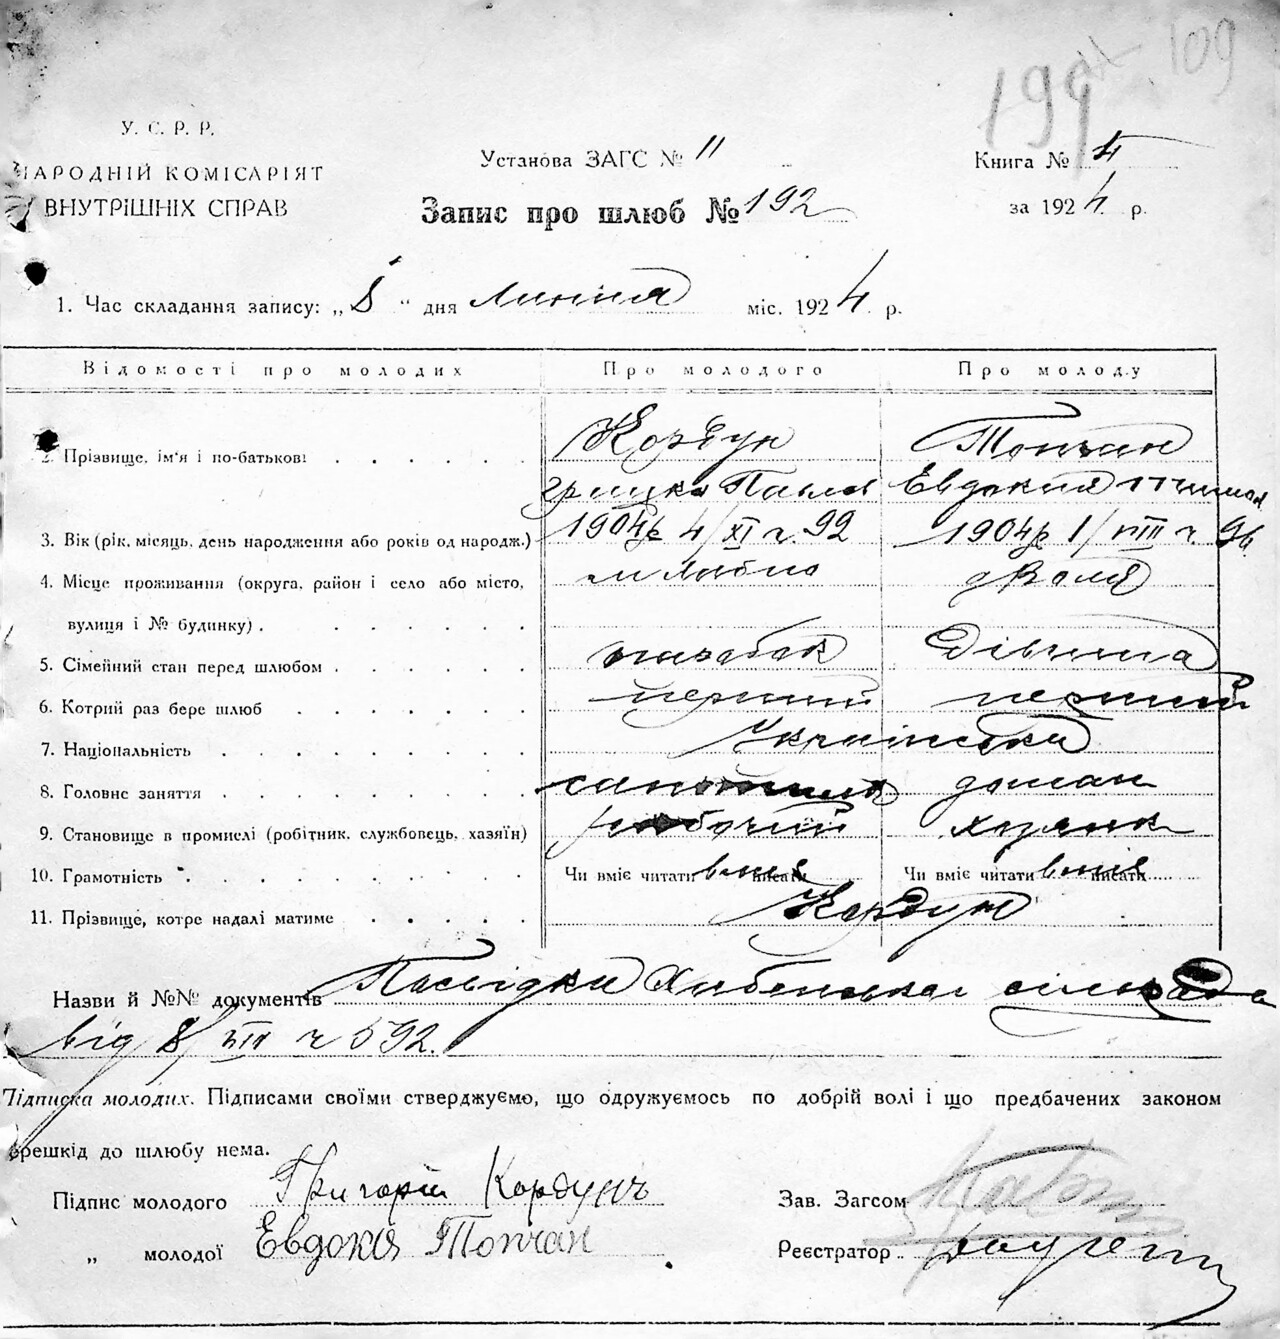 109
199
У. С. Р. Р.
НАРОДНІЙ КОМІСАРІЯТ
ВНУТРІШНІХ СПРАВ
Установа ЗАГС № 11
Книга №
Запис про шлюб № 192
за 1924 р.
1. Час складання запису: „8“ дня липня міс. 1924 р.
Відомості про молодих Про молодого Про молоду
2. Прізвище, ім'я і по-батькові Кордун Топчан
Грицко Павлов Евдокия
3. Вік (рік, місяць, день народження або років од народж.) 1904р 4/XI ч. 92 1904р 1/VIII ч.
4. Місце проживання (округа, район і село або місто,
вулиця і № будинку)
5. Сімейний стан перед шлюбом парубок Дівчина
6. Котрий раз бере шлюб перший перший
7. Національність Українська
8. Головне заняття домаш
9. Становище в промислі (робітник, службовець, хазяїн) робочий хазяйк
10. Грамотність Чи вміє читати вміє писати Чи вміє читати вміє писати
11. Прізвище, котре надалі матиме Кордун
Назви й №№ документів Посвідки сільрада
від 8/VII ч 592.
Підписка молодих. Підписами своїми стверджуємо, що одружуємось по добрій волі і що предбачених законом
прешкід до шлюбу нема.
Підпис молодого Григорій Кордунъ Зав. Загсом
„ молодої Евдокія Топчан Реєстратор